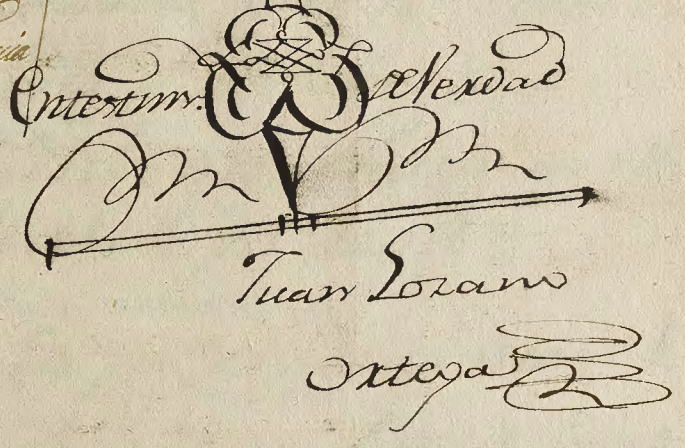 En testim.º de Verdad
Juan Lozano
Ortega